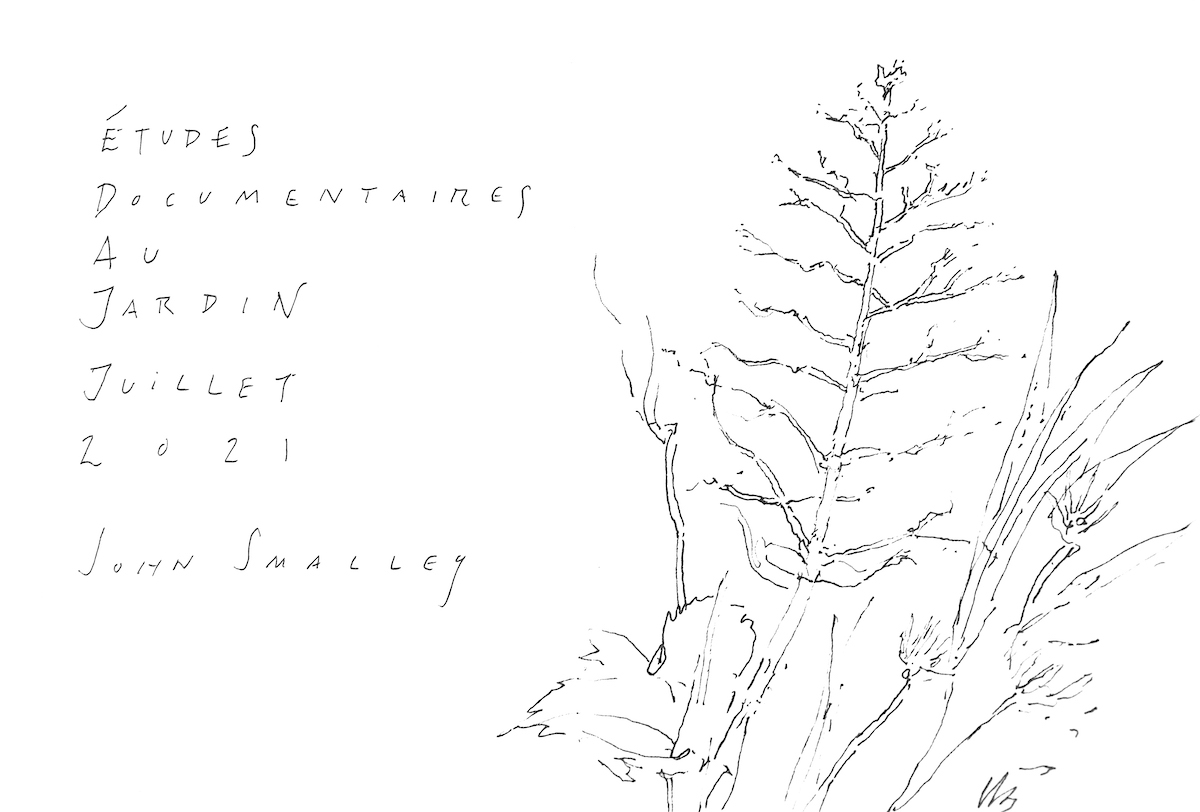 Études
Documentaires
Au
Jardin
Juillet
2021
John Smalley